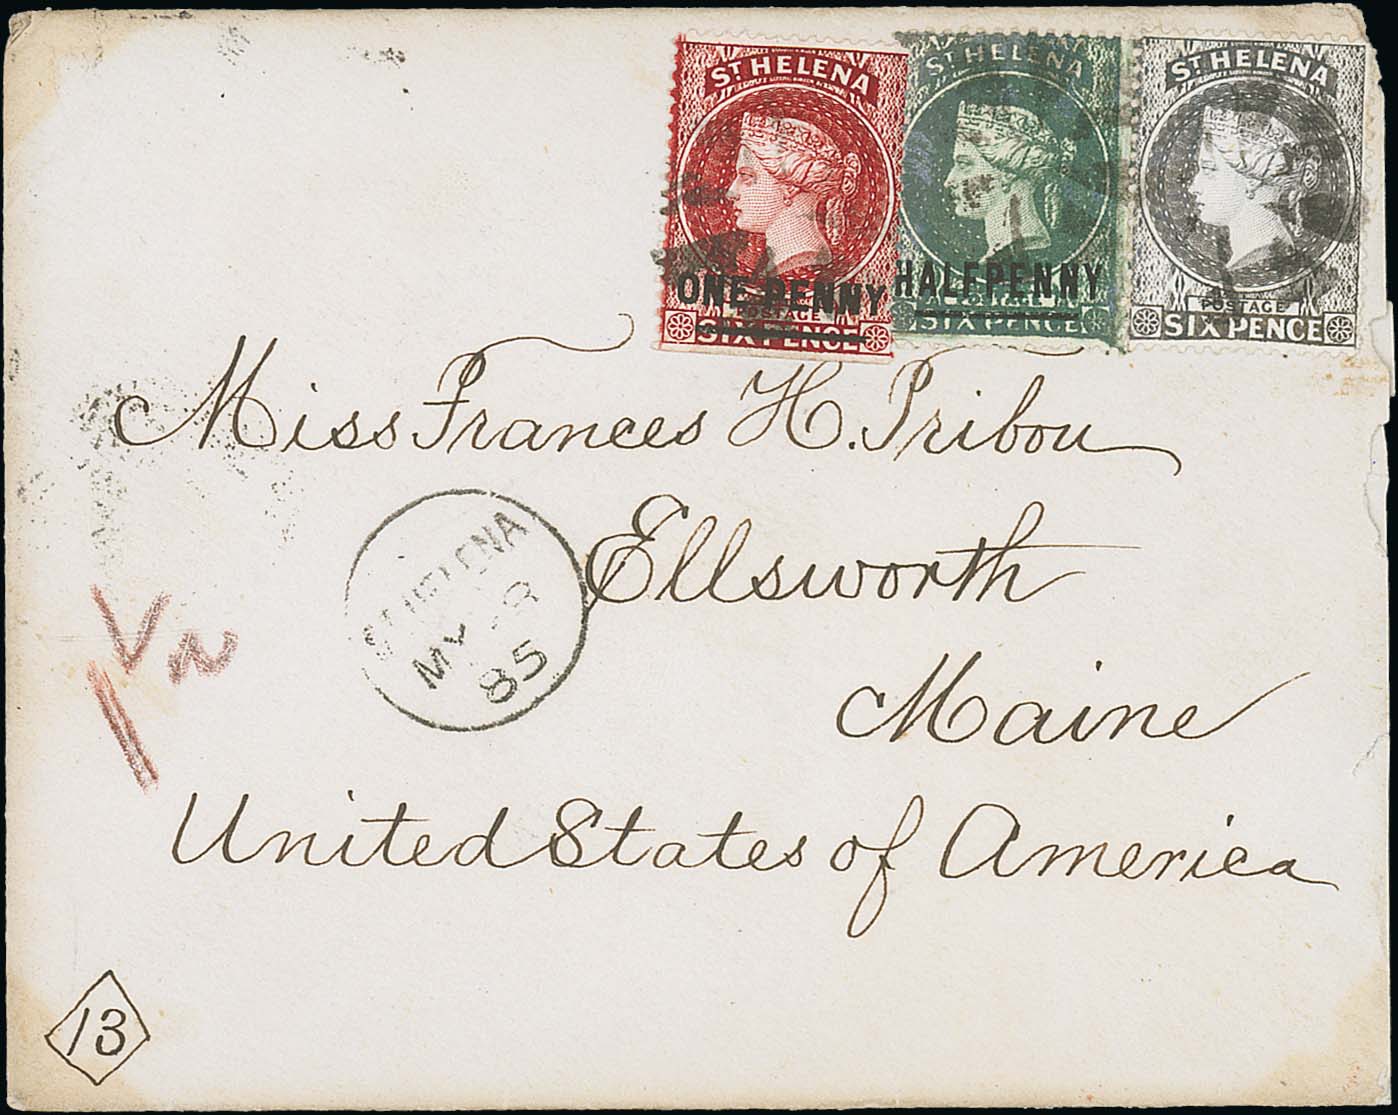 ST HELENA
ONE PENNY
POSTAGE
SIX PENCE
ST HELENA
HALFPENNY
POSTAGE
SIX PENCE
ST HELENA
POSTAGE
SIX PENCE
Miss Frances H. Pribou
ST HELENA
MY 8
85
Ellsworth
Maine
United States of America
13